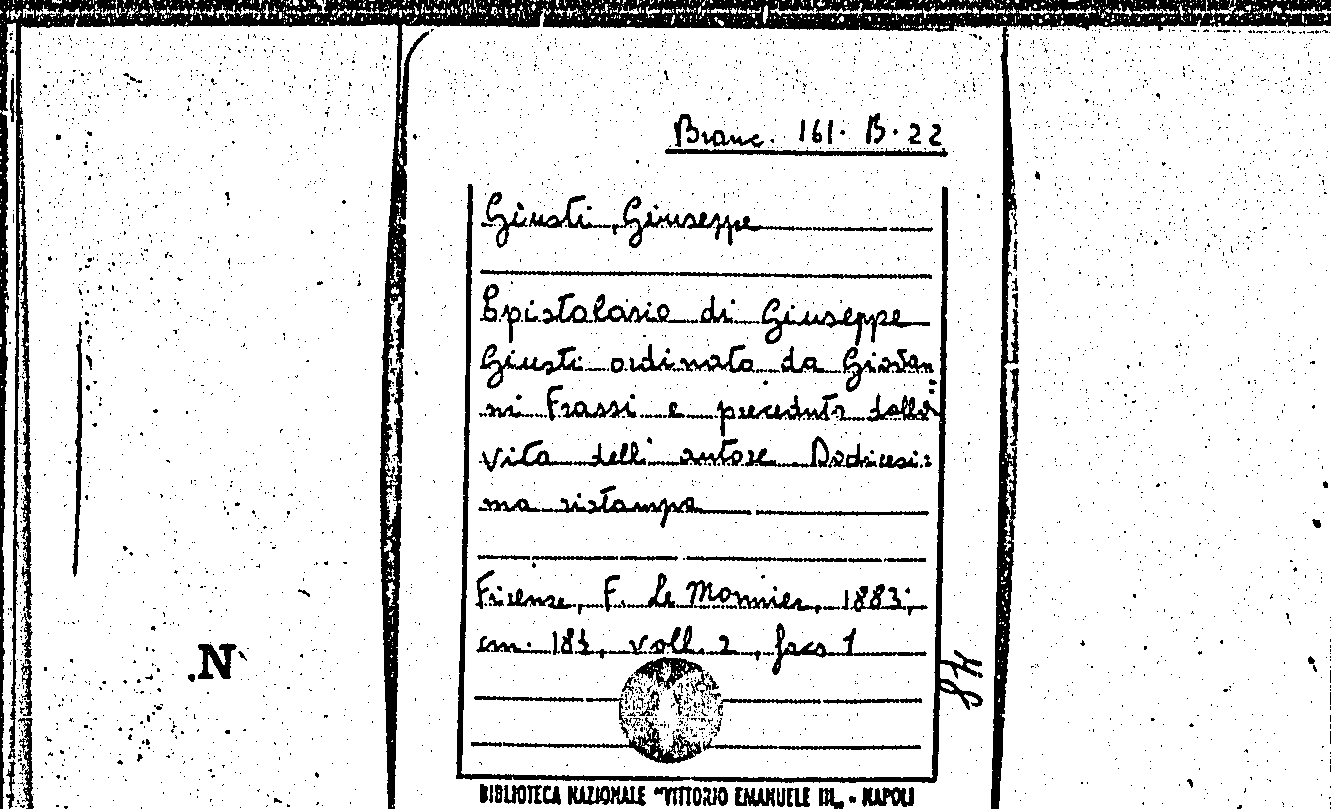 Branc. 161. B. 22
Giusti, Giuseppe
Epistolario di Giuseppe
Giusti ordinato da Giovan
ni Frassi e preceduto dalla
vita dell'autore Dodicesi:
ma ristampa
Firenze, F. Le Monnier, 1883;
cm. 18½, voll. 2, facs 1
84
.N
BIBLIOTECA NAZIONALE "VITTORIO EMANUELE III„ - NAPOLI